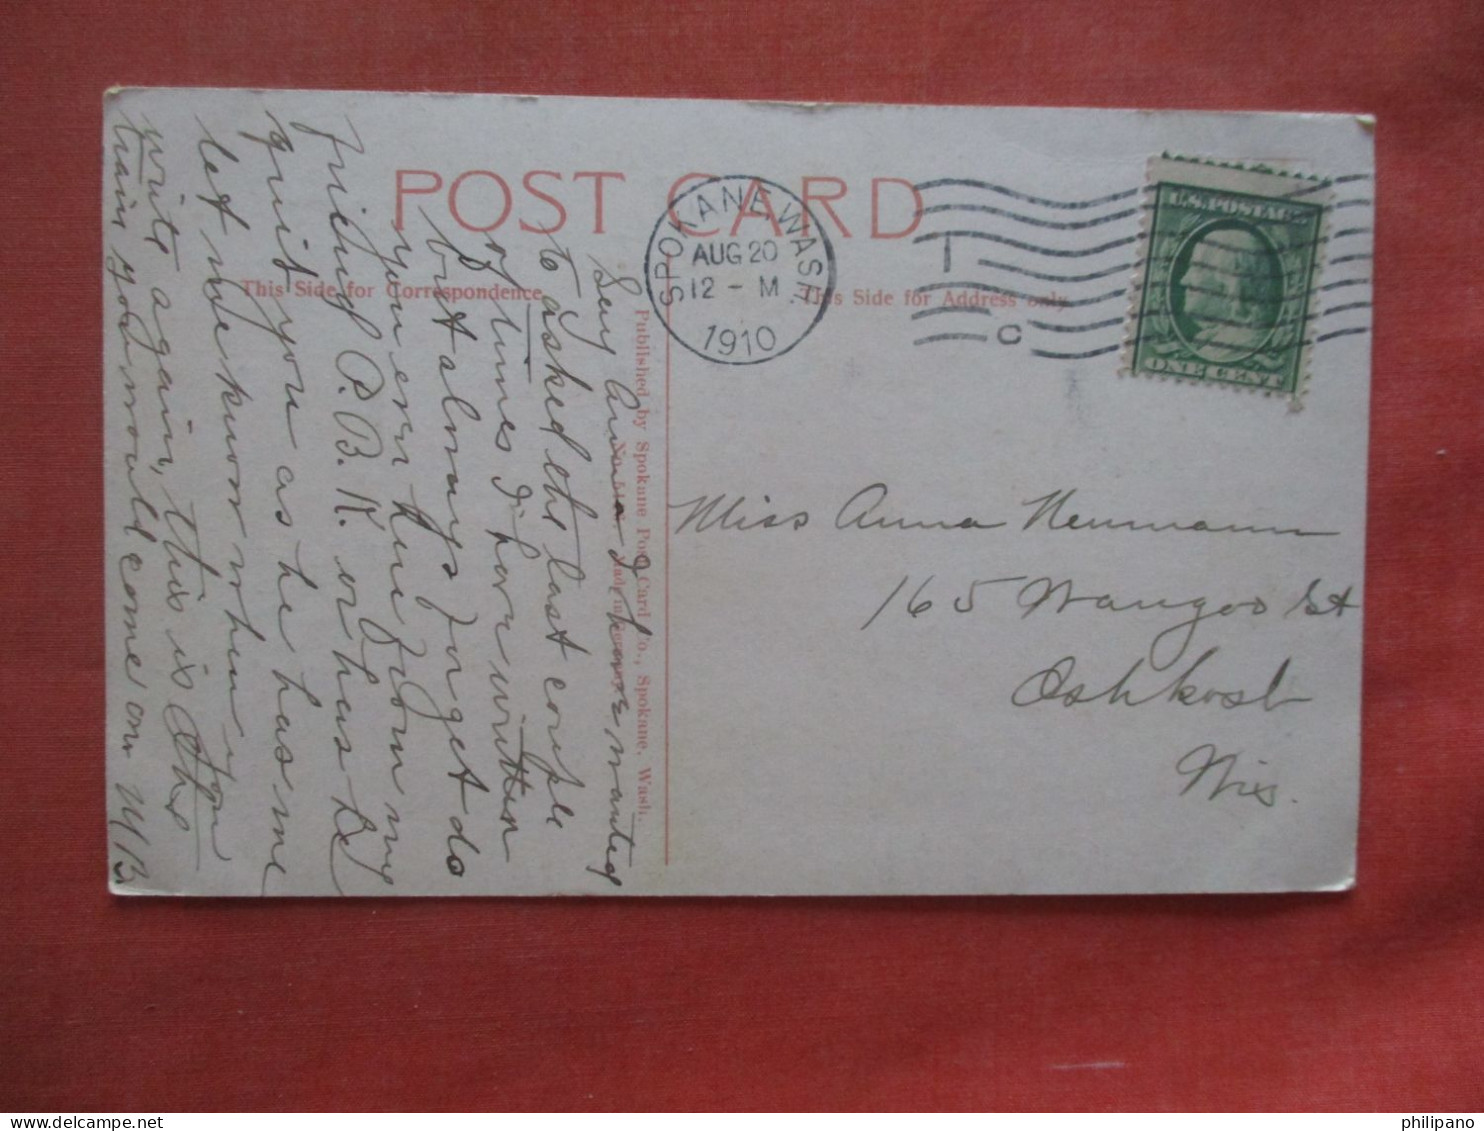 POST CARD
This Side for Correspondence
This Side for Address only
Published by Spokane Post Card Co., Spokane, Wash.
SPOKANE, WASH.
AUG 20
12 - M
1910
C
U.S. POSTAGE
ONE CENT
Miss Anna Neumann
165 Waugoo St
Oshkosh
Wis.
Say Anna I have wanted
to asked the last couple
of times I have written
but always forget do
you ever hear from my
friend P. B. K. or has he
quit you as he has me
let me know when you
write again, this is the
train you would come on MB
philipano
www.delcampe.net